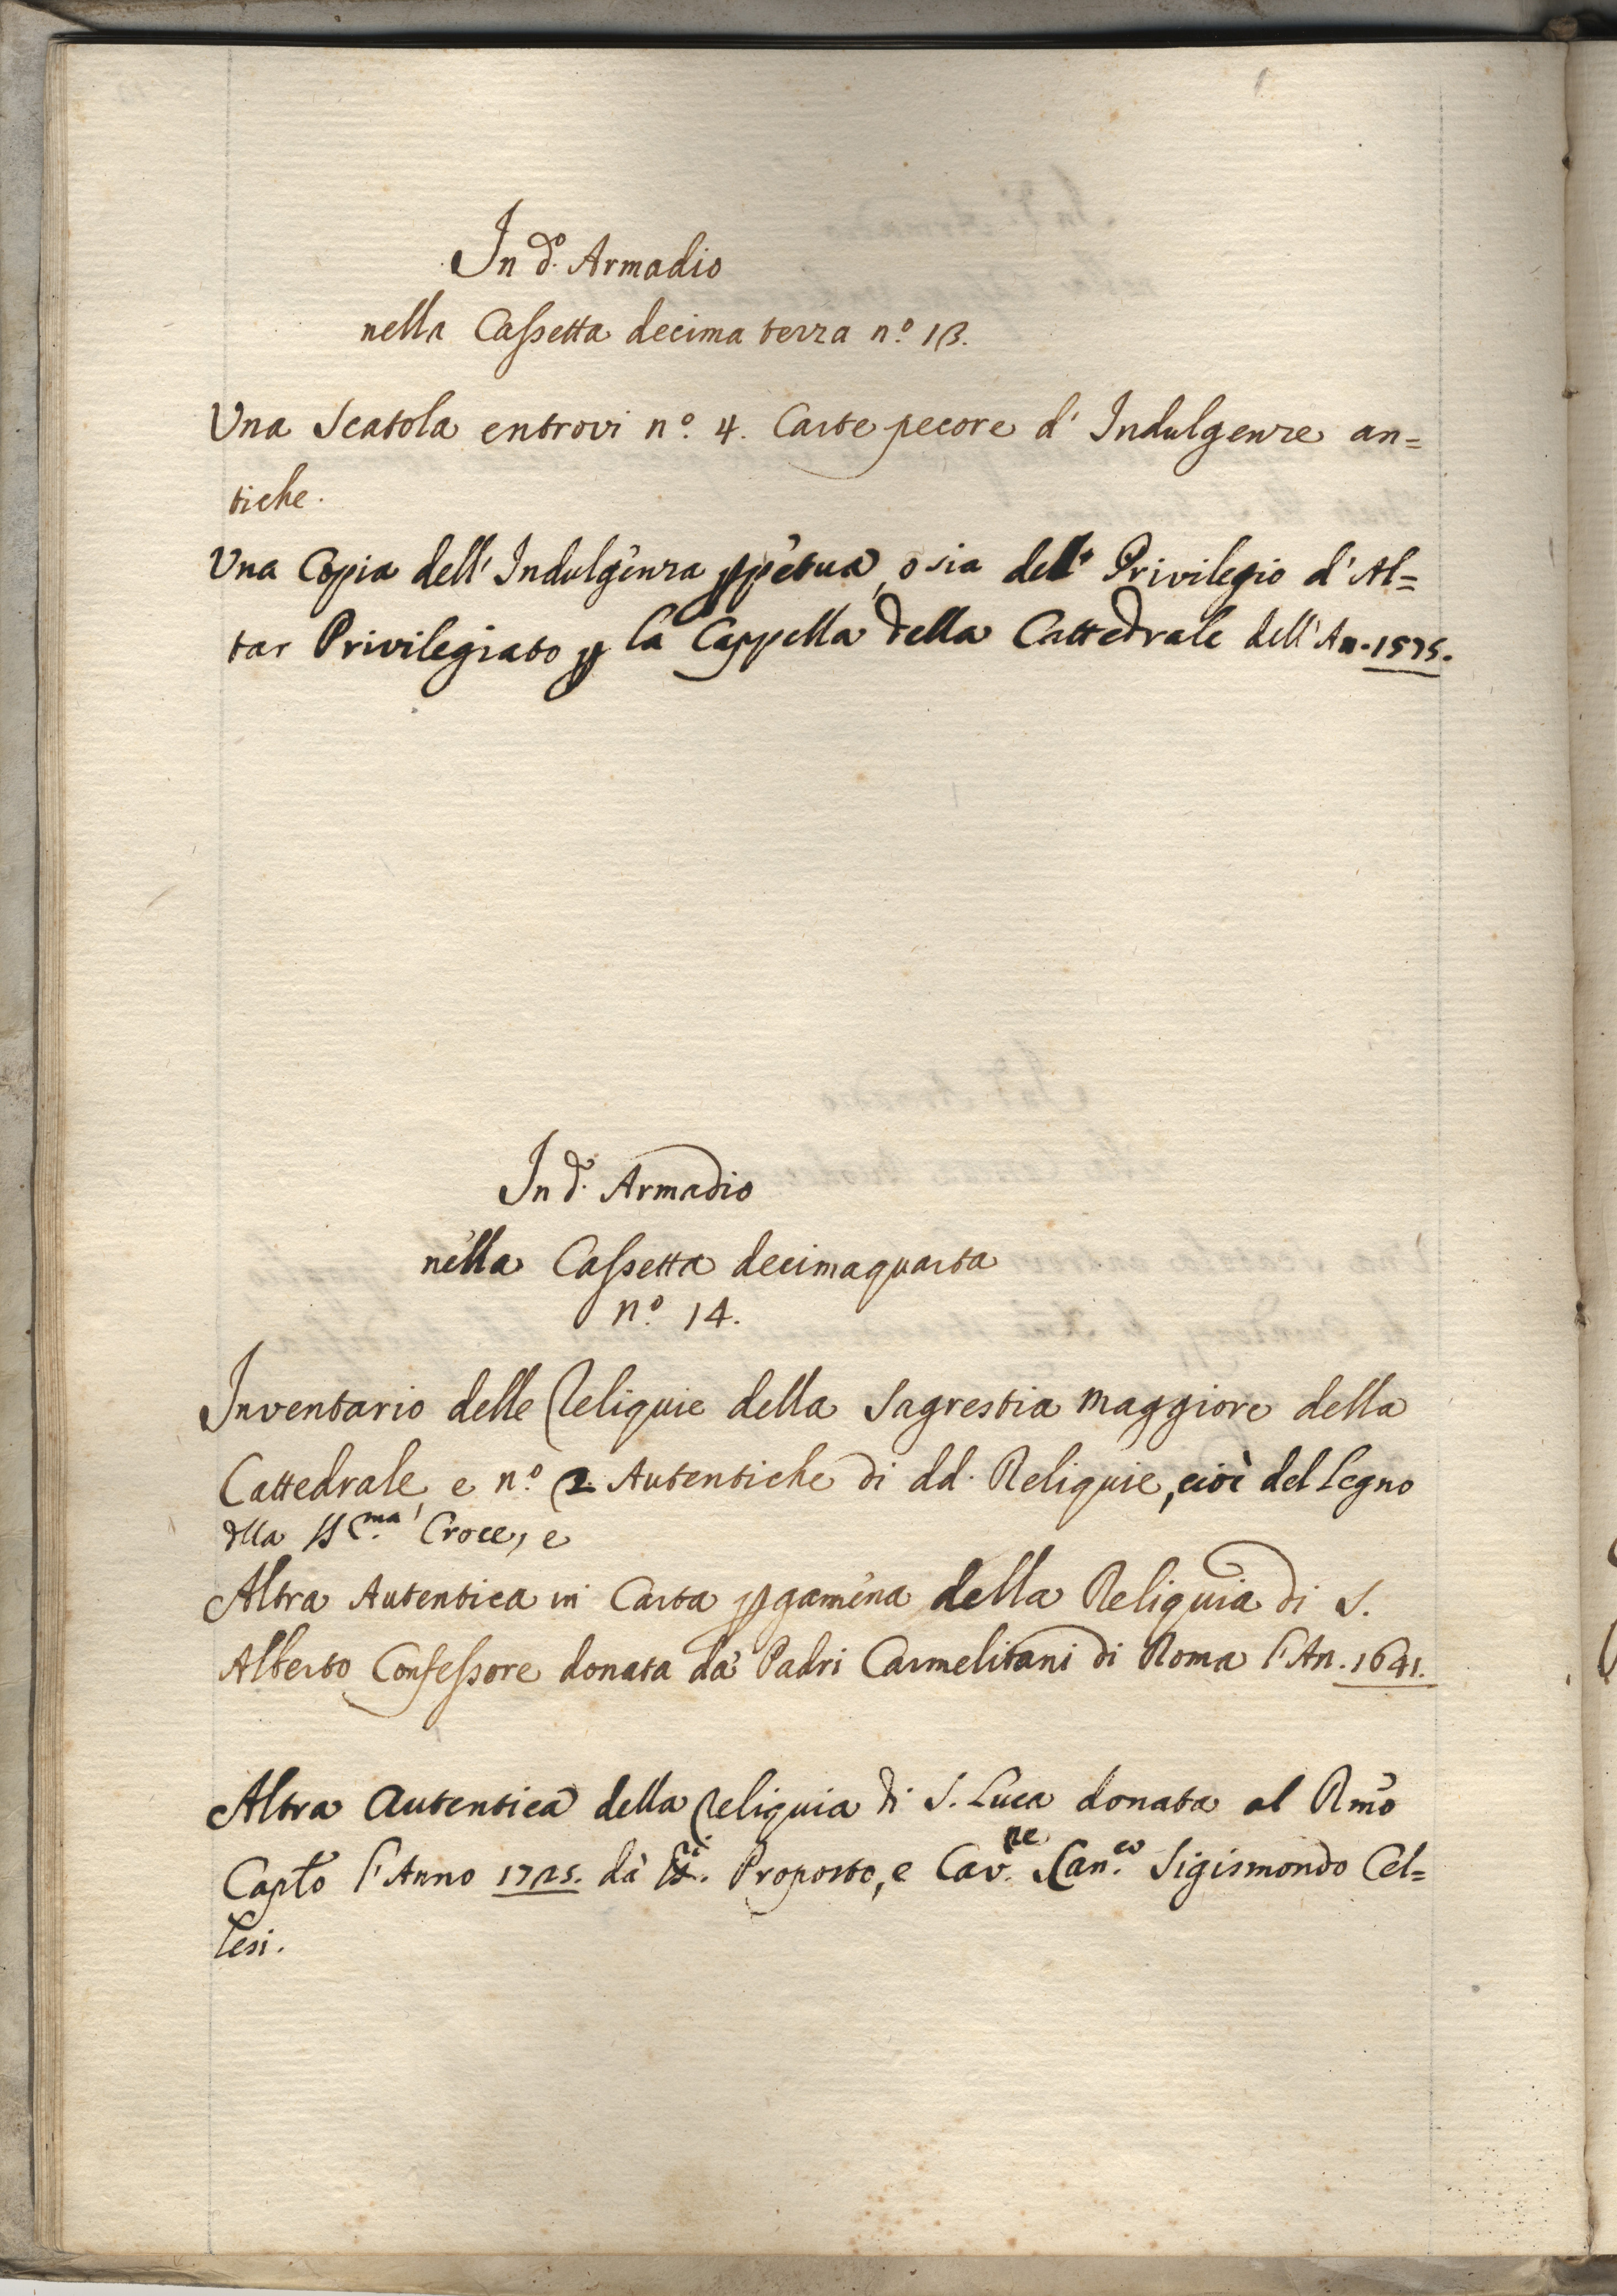 In d.º Armadio
nella Cassetta decima terza n.º 13.
Una Scatola entrovi n.º 4. Carte pecore d' Indulgenze an=
tiche.
Una Copia dell' Indulgenza ppetua, o sia del Privilegio d' Al=
tar Privilegiato p la Cappella della Cattedrale dell' An. 1575.
In d.º Armadio
nella Cassetta decimaquarta
n.º 14.
Inventario delle Reliquie della Sagrestia Maggiore della
Cattedrale, e n.º 2 Autentiche di dd. Reliquie, cioè del Legno
dlla SS.ma Croce, e
Altra Autentica in Carta pgamena della Reliquia di S.
Alberto Confessore donata da' Padri Carmelitani di Roma l' An. 1641.
Altra Autentica della Reliquia di S. Luca donata al Rmo
Caplo l' Anno 1725. dà Proposto, e Cav.re Can.co Sigismondo Cel=
lesi.